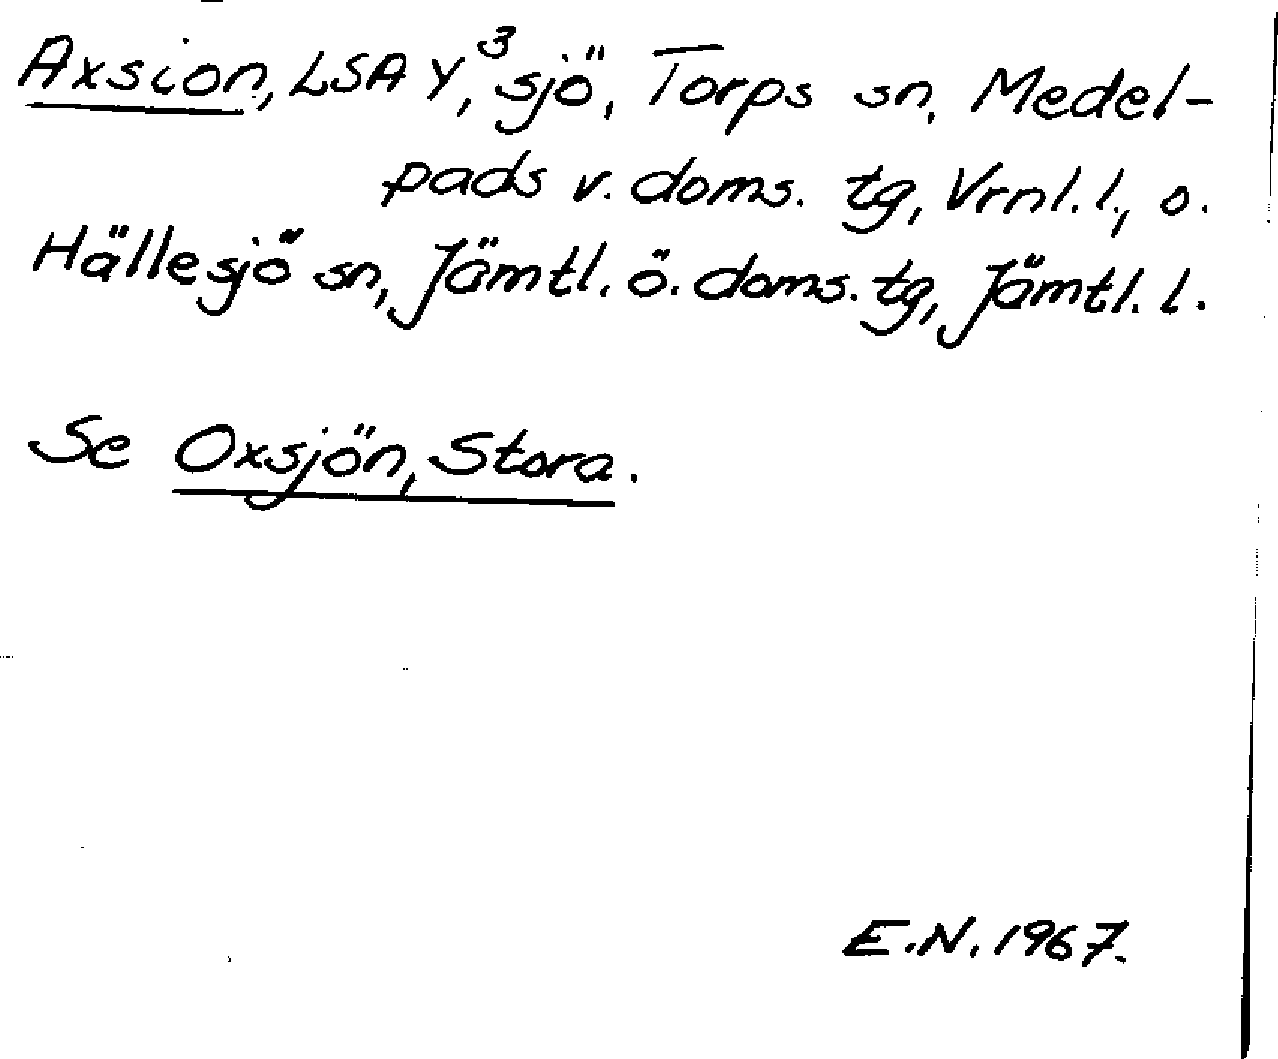 Axsion, LSA Y,³ sjö, Torps sn, Medel-
pads v. doms. tg, Vrnl. l., o.
Hällesjö sn, Jämtl. ö. doms. tg, Jämtl. l.
Se Oxsjön, Stora.
E.N. 1967.